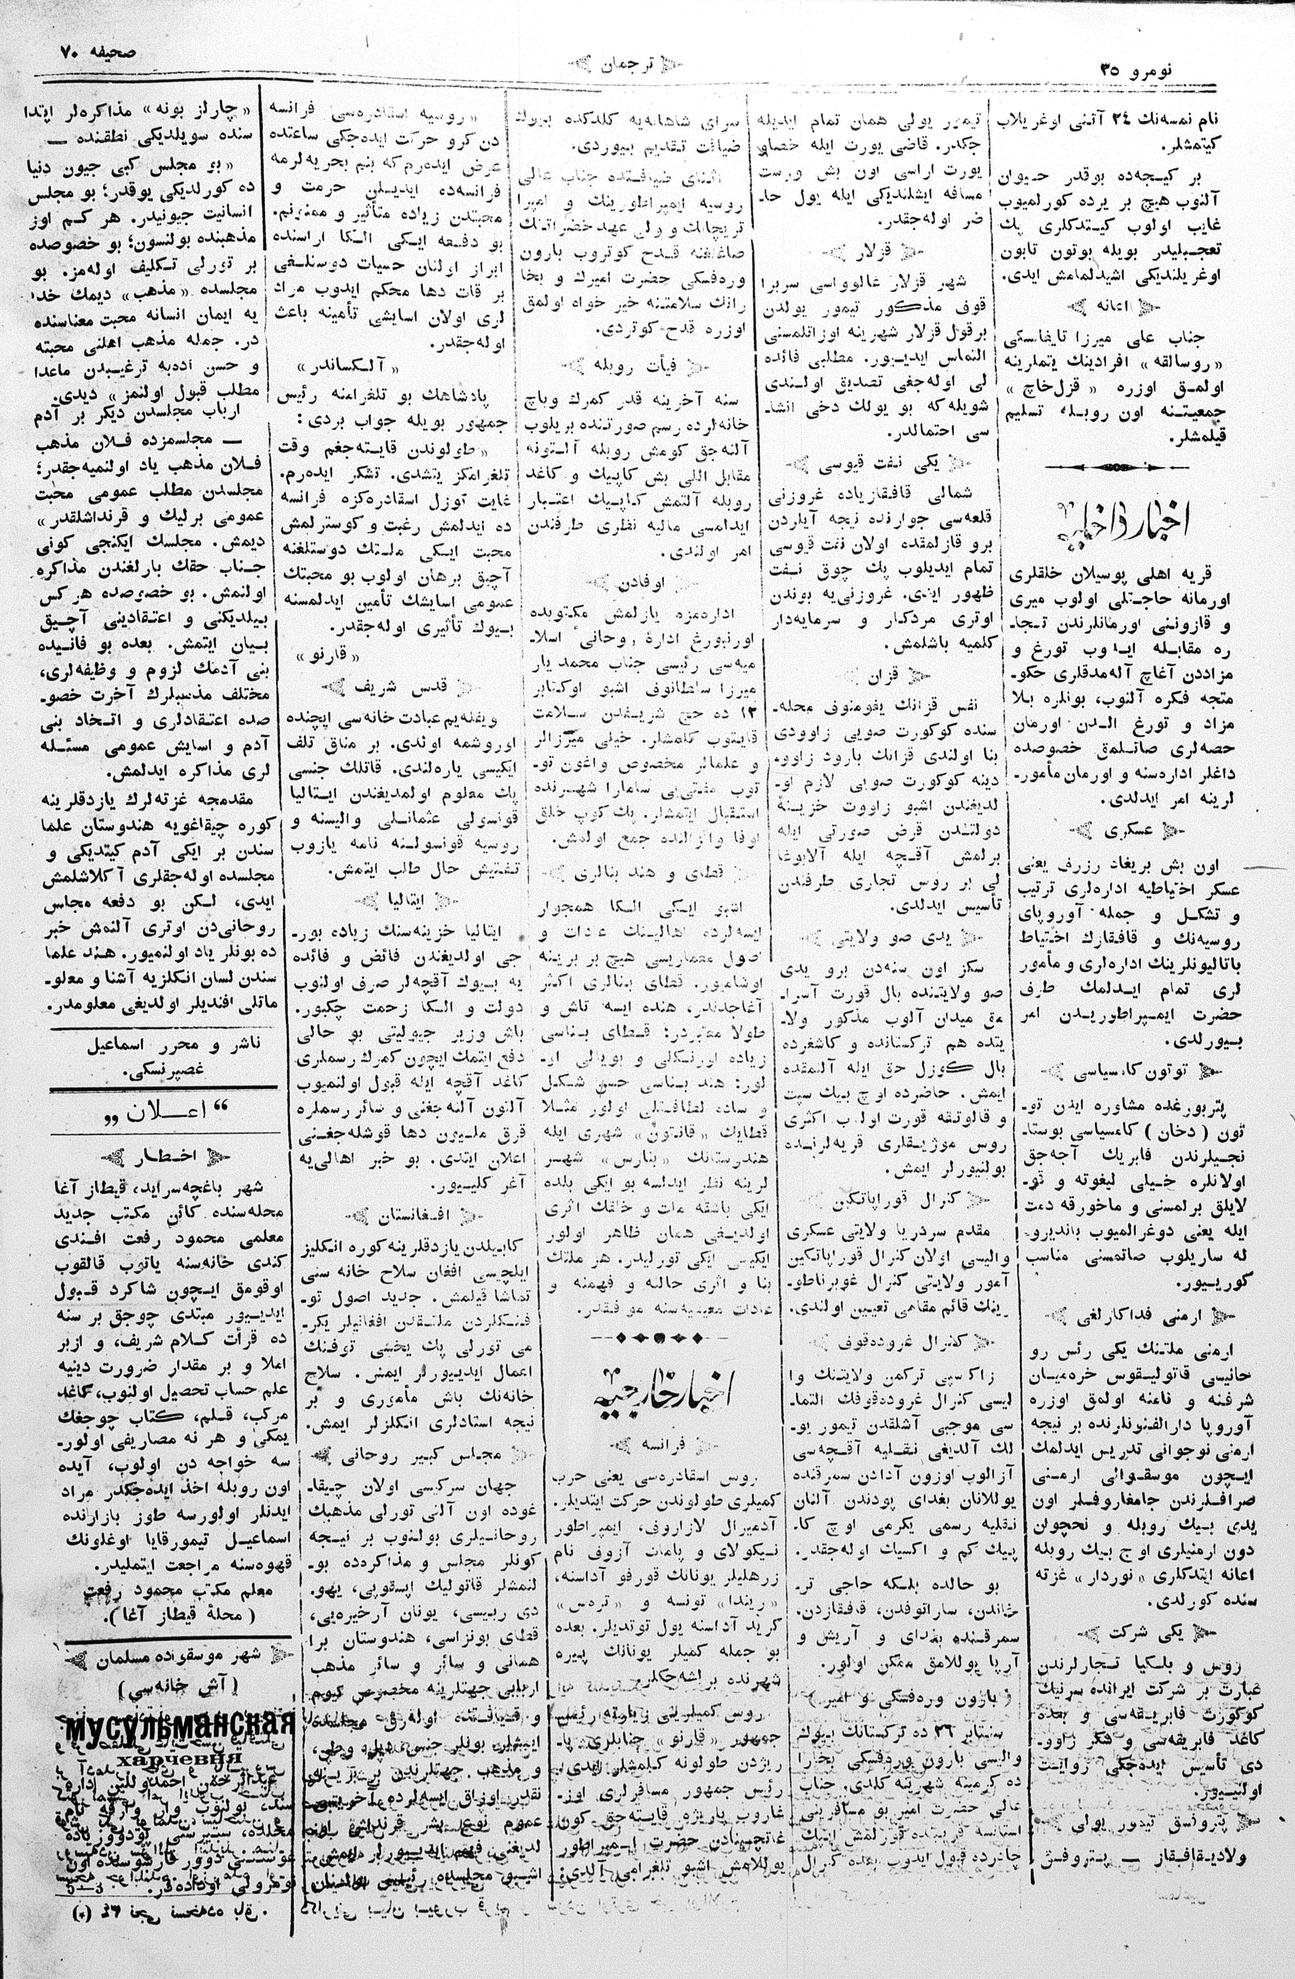 نومرو ٣٥
ترجمان
صحیفه ٧٠
نام نمسه‌نك ٢٤ آتنی اوغریلاب
کیتمشلر.
بر کیجه‌ده بوقدر حیوان
آلنوب هیچ بر یرده کورلمیوب
غایب اولوب کیتدکلری پك
تعجبلیدر بویله بوتون تابون
اوغریلندیکی اشیدلمامش ایدی.
اعانه
جناب علی میرزا تایفاستکی
«روسالقه» افرادینك یتملرینه
اولمق اوزره «قزل خاچ»
جمعیتنه اون روبله تسلیم
قیلمشلر.
اخبار داخلیه
قریه اهلی پوسیلان خلقلری
اورمانه حاجتلی اولوب میری
و قازونی اورمانلرندن تجا-
ره مقابله ایدوب تورغ و
مزاددن آغاچ آله‌مدقلری حکو-
متجه فکره آلنوب، بونلره بلا
مزاد و تورغ الدن اورمان
حصه‌لری صاتلمق خصوصده
داغلر اداره‌سنه و اورمان مأمور-
لرینه امر ایدلدی.
عسکری
اون بش بریغاد رزرف یعنی
عسکر اختیاطیه اداره‌لری ترتیب
و تشکل و جمله آوروپای
روسیه‌نك و قافقازك اختیاط
باتالیونلرینك اداره‌لری و مأمور
لری تمام ایدلمك طرف
حضرت ایمپراطوریدن امر
بیورلدی.
توتون کامسیاسی
پتربورغده مشاوره ایدن تو-
تون (دخان) کامسیاسی بوستا-
نجیلرندن فابریك آجه‌جق
اولانلره خیلی لیغوته و قو-
لایلق برلمسنی و ماخورقه دمت
ایله یعنی دوغرالمیوب باندیرو-
له ساریلوب صاتمسنی مناسب
کوریبیور.
ارمنی فداکارلغی
ارمنی ملتنك یکی رئس رو
حانیسی قاتولیقوس خره‌میان
شرفنه و نامنه اولمق اوزره
آوروپا دارالفنونلرنده بر نیجه
ارمنی نوجوانی تدریس ایدلمك
ایچون موسقوائی ارمنی
صرافلرندن جامغاروفلر اون
یدی بیك روبله و نخچوان
دون ارمنیلری اوچ بیك روبله
اعانه ایتدکلری «نوردار» غزته
سنده کورلدی.
یکی شرکت
روس و بلکیا تجارلرندن
عبارت بر شرکت ایرانده سرنیك
کوکورت فابریقه‌سی و بعده
کاغد فابریقه‌سی و شکر زاوو-
دی تأسیس ایده‌جکی روایت
اولنیور.
پتروسق تیمور یولی
ولادیقافقاز — پتروفسق
تیمور یولی همان تمام ایدیله
جکدر. قاضی یورت ایله خصاو
یورت اراسی اون بش ورست
مسافه ایشلندیکی ایله یول حا-
ضر اوله‌جقدر.
قزلار
شهر قزلار غالوواسی سربرا
قوف مذکور تیمور یولدن
برقول قزلار شهرینه اوزاتلمسنی
التماس ایدیور. مطلبی فائده
لی اوله‌جغی تصدیق اولندی
شویله‌که بو یولك دخی انشا-
سی احتمالدر.
یکی نفت قیوسی
شمالی قافقازیاده غروزنی
قلعه‌سی جوارنده نیجه آیلردن
برو قازلمقده اولان نفت قیوسی
تمام ایدیلوب پك چوق نفت
ظهور ایتدی. غروزنی‌یه بوندن
اوتری مردکار و سرمایه‌دار
کلمیه باشلمش.
قزان
نفس قزانك یفومنوف محله-
سنده کوکورت صویی زاوودی
بنا اولندی قزانك بارود زاوو-
دینه کوکورت صویی لازم او-
لدیغندن اشبو زاووت خزینهٔ
دولتدن قرض صورتی ایله
برلمش آقچه ایله آلابوغا
لی بر روس تجاری طرفندن
تأسیس ایدلدی.
یدی صو ولایتی
سکز اون سنه‌دن برو یدی
صو ولایتنده بال قورت آسرا-
مق میدان آلوب مذکور ولا-
یتده هم ترکستانده و کاشغرده
بال کوزل حق ایله آلنمقده
ایمش. حاضرده اوچ بیك سپت
و قالوتقه قورت اولوب اکثری
روس موژیقلری قریه‌لرنده
بولنیورلر ایمش.
کنرال قوراپاتکین
مقدم سردریا ولایتی عسکری
والیسی اولان کنرال قوراپاتکین
آمور ولایتی کنرال غوبرناطو-
رینك قائم مقامی تعیین اولندی.
کنرال غروده‌قوف
زاکسپی ترکمن ولایتنك وا
لیسی کنرال غروده‌قوفك التما-
سی موجبی آشلقدن تیمور یو-
لك آلدیغی نقلیه آقچه‌سی
آزالوب اوزون آدادن سمرقنده
یوللانان بغدای پودندن آلنان
نقلیه رسمی یکرمی اوچ کا-
پیك کم و اکسیك اوله‌جقدر.
بو حالده بلکه حاجی تر-
خاندن، ساراتوفدن، قافقازدن،
سمرقنده بغدای و آریش و
آرپا یوللامق ممکن اولور.
(بارون وره‌فسکی و امیر)
سنتابر ٢٦ ده ترکستانك بیوك
والیسی بارون وردفسکی بخارا
ده کرمینه شهرینه کلدی. جناب
عالی حضرت امیر بو مسافرینی
چادرده قبول ایدوب بعده کنرال
سرای شاهانه‌یه کلدکده بیوك
ضیافت تقدیم بیوردی.
اثنای ضیافتده جناب عالی
روسیه ایمپراطورینك و امپرا
تریچانك و ولی عهد حضراتنك
صاغلغنه قدح کوتروب بارون
وره‌فسکی حضرت امیرك و بخا
رانك سلامتنه خیر خواه اولمق
اوزره قدح کوتردی.
فیأت روبله
سنه آخرینه قدر کمرك وباچ
خانه‌لرده رسم صورتنده بریلوب
آلنه‌جق کومش روبله آلتونه
مقابل اللی بش کاپیك و کاغد
روبله آلتمش کاپیك اعتبار
ایدلمسی مالیه نظری طرفندن
امر اولندی.
اوفادن
اداره‌مزه یازلمش مکتوبده
اورنبورغ ادارهٔ روحانیٔ اسلا-
میه‌سی رئیسی جناب محمد یار
میرزا سلطانوف اشبو اوکتابر
١٣ ده حج شریفدن سلامت
قایتوب کلمشلر. خیلی میرزالر
و علمالر مخصوص واغون تو-
توب مفتی‌یی سامارا شهرنده
استقبال ایتمشلر. پك کوپ خلق
اوفا واغزالنده جمع اولمش.
قطای و هند بنالری
اشبو ایکی الکا همجوار
ایسه‌لرده اهالینك عادات و
اصول معماریسی هیچ بر برینه
اوشامیور. قطای بنالری اکثر
آغاجدندر، هنده ایسه تاش و
طولا معتبردر: قطای بناسی
زیاده اورنکلی و بویالی او-
لور: هند بناسی حسن شکل
و ساده لطافتلی اولور مثلا
قطایك «قانتون» شهری ایله
هندوستانك «بنارس» شهر
لرینه نظر ایدلسه بو ایکی بلده
ایکی باشقه ملت و خلقك اثری
اولدیغی همان ظاهر اولور
ایکیسی ایکی تورلیدر. هر ملتك
بنا و اثری حالنه و فهمنه و
عادات معیشه‌سنه موافقدر.
اخبار خارجیه
فرانسه
روس اسقادره‌سی یعنی حرب
کمیلری طولوندن حرکت ایتدیلر.
آدمیرال لازاروف، ایمپراطور
نیکولای و پامات آزوف نام
زرهلیلر یونانك قورفو آداسنه،
«ریندا» تونسه و «ترمس»
کرید آداسنه یول توتدیلر. بعده
بو جمله کمیلر یونانك پیره
شهرنده برلشه‌جکلر.
روس کمیلرینی زیارته رئیس
جمهور «قارنو» جنابلری پا-
ریژدن طولونه کلمشلر ایدی.
رئیس جمهور مسافرلری اوز-
غاروب پاریژه قایته‌جق کون
غاتچینادن حضرت ایمپراطور
یوللامش اشبو تلغرامی آلدی:
«روسیه اسقادره‌سی فرانسه
دن کرو حرکت ایده‌جکی ساعتده
عرض ایده‌رم‌که بنم بحریه‌لرمه
فرانسه‌ده ایدیلن حرمت و
محبتدن زیاده متأثیر و ممنونم.
بو دفعه ایکی الکا اراسنده
ابراز اولنان حسیات دوستلغی
بر قات دها محکم ایدوب مراد
لری اولان اسایشی تأمینه باعث
اوله‌جقدر.
«آلکساندر»
پادشاهك بو تلغرامنه رئیس
جمهور بویله جواب بردی:
«طولوندن قایته‌جغم وقت
تلغرامکز یتشدی. تشکر ایده‌رم.
غایت توزل اسقادره‌کزه فرانسه
ده ایدلمش رغبت و کوسترلمش
محبت ایکی ملتك دوستلغنه
آچیق برهان اولوب بو محبتك
عمومی اسایشك تأمین ایدلمسنه
بیوك تأثیری اوله‌جقدر.
«قارنو»
قدس شریف
ویفله‌یم عبادت خانه‌سی ایچنده
اوروشمه اولدی. بر مناق تلف
ایکیسی یاره‌لندی. قاتلك جنسی
پك معلوم اولمدیغندن ایتالیا
قونسولی عثمانلی والیسنه و
روسیه قونسولنه نامه یازوب
تفتیش حال طلب ایتمش.
ایتالیا
ایتالیا خزینه‌سنك زیاده بور-
جی اولدیغندن فائض و فائده
یه بیوك آقچه‌لر صرف اولنوب
دولت و الکا زحمت چکیور.
باش وزیر جیولیتی بو حالی
دفع ایتمك ایچون کمرك رسملری
کاغد آقچه ایله قبول اولنمیوب
آلتون آلنه‌جغنی و سائر رسملره
قرق ملیون دها قوشله‌جغنی
اعلان ایتدی. بو خبر اهالی‌یه
آغر کلیور.
افغانستان
کابیلدن یازدقلرینه کوره انکلیز
ایلچسی افغان سلاح خانه سنی
تماشا قیلمش. جدید اصول تو-
فنکلردن ملتقدن افغانیلر یکر-
می تورلی پك یخشی توفنك
اعمال ایدیورلر ایمش. سلاح
خانه‌نك باش مأموری و بر
نیجه استادلری انکلزلر ایمش.
مجلس کبیر روحانی
جهان سرکسی اولان چیقا-
غوده اون آلتی تورلی مذهبك
روحانیلری بولنوب بر نیجه
کونلر مجلس و مذاکره‌ده بو-
لنمشلر قاتولیك اپسقوپی، یهو-
دی ربیسی، یونان آرخیره‌یی،
قطای بونزاسی، هندوستان برا
همانی و سائر و سائر مذهب
اربابی جهتلرینه مخصوص کیوم
و قیافتده اوله‌رق مجلسده
ایمشلر. بونلر جنس، میله وطن،
و مذهب جهتلرندن بر برینه
نقدر اوزاق ایسه‌لرده آخریسی
عموم نوع بشر قرنداش او-
لدیغنی فهم ایدیورلر ایمش.
اشبو مجلسده رئیس بولنان
«چارلز بونه» مذاکره‌لر ابتدا
سنده سویلدیکی نطقنده —
«بو مجلس کبی جیون دنیا
ده کورلدیکی یوقدر؛ بو مجلس
انسانیت جیونیدر. هر کم اوز
مذهبنده بولنسون؛ بو خصوصده
بر تورلی تکلیف اوله‌مز. بو
مجلسده «مذهب» دیمك خدا
یه ایمان انسانه محبت معناسنده
در. جمله مذهب اهلنی محبته
و حسن ادبه ترغیبدن ماعدا
مطلب قبول اولنمز» دیدی.
ارباب مجلسدن دیکر بر آدم
— مجلسمزده فلان مذهب
فلان مذهب یاد اولنمیه‌جقدر؛
مجلسدن مطلب عمومی محبت
عمومی برلیك و قرنداشلقدر»
دیمش. مجلسك ایکنجی کونی
جناب حقك بارلغندن مذاکره
اولنمش. بو خصوصده هر کس
بیلدیکنی و اعتقادینی آچیق
بیان ایتمش. بعده بو فانیده
بنی آدمك لزوم و وظیفه‌لری،
مختلف مذهبلرك آخرت خصو-
صده اعتقادلری و اتحاد بنی
آدم و اسایش عمومی مسئله
لری مذاکره ایدلمش.
مقدمجه غزته‌لرك یازدقلرینه
کوره چیقاغویه هندوستان علما
سندن بر ایکی آدم کیتدیکی و
مجلسده اوله‌جقلری آکلاشلمش
ایدی، لکن بو دفعه مجلس
روحانی‌دن اوتری آلنمش خبر
ده بونلر یاد اولنمیور. هند علما
سندن لسان انکلزیه آشنا و معلو-
ماتلی افندیلر اولدیغی معلومدر.
ناشر و محرر اسماعیل
غصپرنسکی.
“اعـلان”
اخطار
شهر باغچه‌سرایده، قیطاز آغا
محله‌سنده کائن مکتب جدید
معلمی محمود رفعت افندی
کندی خانه‌سنه یاتوب قالقوب
اوقومق ایچون شاکرد قبول
ایدیور مبتدی چوجق بر سنه
ده قرأت کلام شریف، و ازبر
املا و بر مقدار ضرورت دینیه
علم حساب تحصیل اولنوب، کاغد
مرکب، قلم، کتاب چوجغك
یمکی و هر نه مصاریفی اولور-
سه خواجه دن اولوب، آیده
اون روبله اخذ ایده‌جکدر مراد
ایدنلر اولورسه طوز بازارنده
اسماعیل تیمورقایا اوغلونك
قهوه‌سنه مراجعت ایتملیدر.
معلم مکتب محمود رفعت
(محلهٔ قیطاز آغا).
شهر موسقوده مسلمان
(آش خانه‌سی)
мусульманская
харчевня
عبدالرحمن احمدوللین اداره